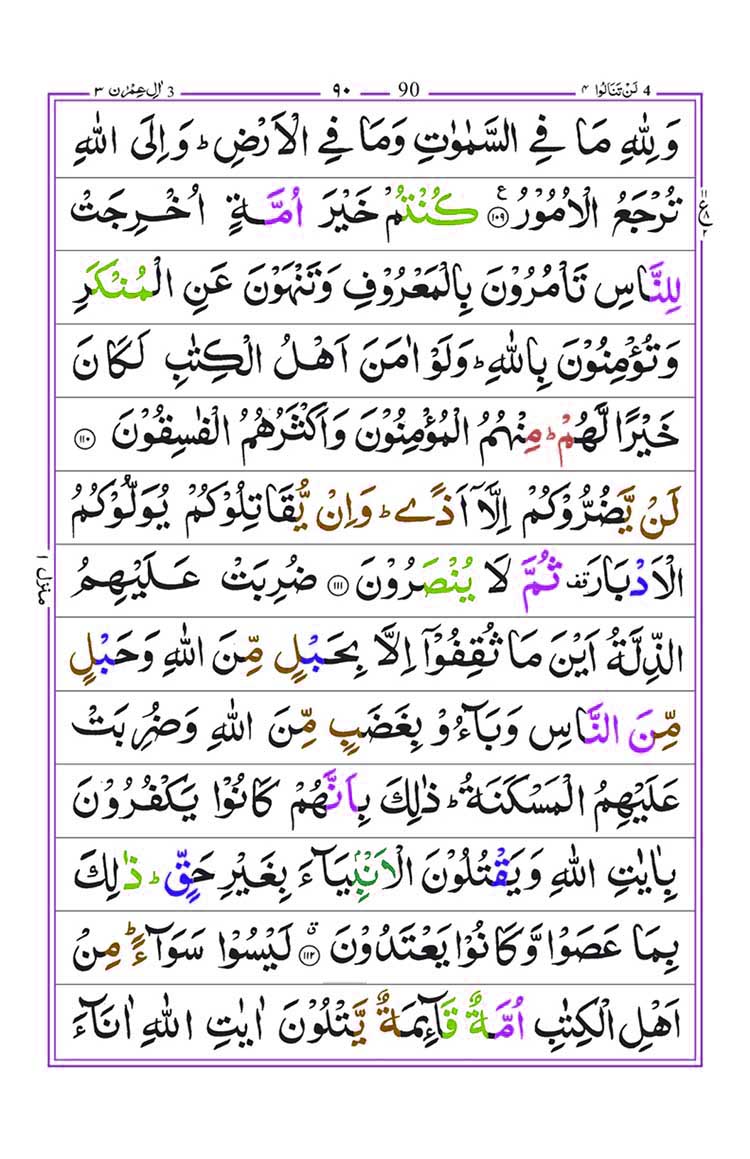 4 لَنْ تَنَالُوْا ۴ 90 ۹۰ 3 اٰلِ عِمْرٰن ۳
وَ لِلّٰهِ مَا فِی السَّمٰوٰتِ وَمَا فِی الْاَرْضِ ؕ وَ اِلَی اللّٰهِ
تُرْجَعُ الْاُمُوْرُ ۧ ۝۱۰۹ كُنْتُمْ خَیْرَ اُمَّةٍ اُخْرِجَتْ
لِلنَّاسِ تَاْمُرُوْنَ بِالْمَعْرُوْفِ وَتَنْهَوْنَ عَنِ الْمُنْكَرِ
وَتُؤْمِنُوْنَ بِاللّٰهِ ؕ وَلَوْ اٰمَنَ اَهْلُ الْكِتٰبِ لَكَانَ
خَیْرًا لَّهُمْ ؕ مِنْهُمُ الْمُؤْمِنُوْنَ وَاَكْثَرُهُمُ الْفٰسِقُوْنَ ۝۱۱۰
لَنْ یَّضُرُّوْكُمْ اِلَّاۤ اَذًی ؕ وَاِنْ یُّقَاتِلُوْكُمْ یُوَلُّوْكُمُ
الْاَدْبَارَ ۫ ثُمَّ لَا یُنْصَرُوْنَ ۝۱۱۱ ضُرِبَتْ عَلَیْهِمُ
الذِّلَّةُ اَیْنَ مَا ثُقِفُوْۤا اِلَّا بِحَبْلٍ مِّنَ اللّٰهِ وَحَبْلٍ
مِّنَ النَّاسِ وَبَآءُوْ بِغَضَبٍ مِّنَ اللّٰهِ وَضُرِبَتْ
عَلَیْهِمُ الْمَسْكَنَةُ ؕ ذٰلِكَ بِاَنَّهُمْ كَانُوْا یَكْفُرُوْنَ
بِاٰیٰتِ اللّٰهِ وَیَقْتُلُوْنَ الْاَنْۢبِیَآءَ بِغَیْرِ حَقٍّ ؕ ذٰلِكَ
بِمَا عَصَوْا وَّكَانُوْا یَعْتَدُوْنَ ۝۱۱۲ ق لَیْسُوْا سَوَآءً ؕ مِنْ
اَهْلِ الْكِتٰبِ اُمَّةٌ قَآىِٕمَةٌ یَّتْلُوْنَ اٰیٰتِ اللّٰهِ اٰنَآءَ
منزل ۱